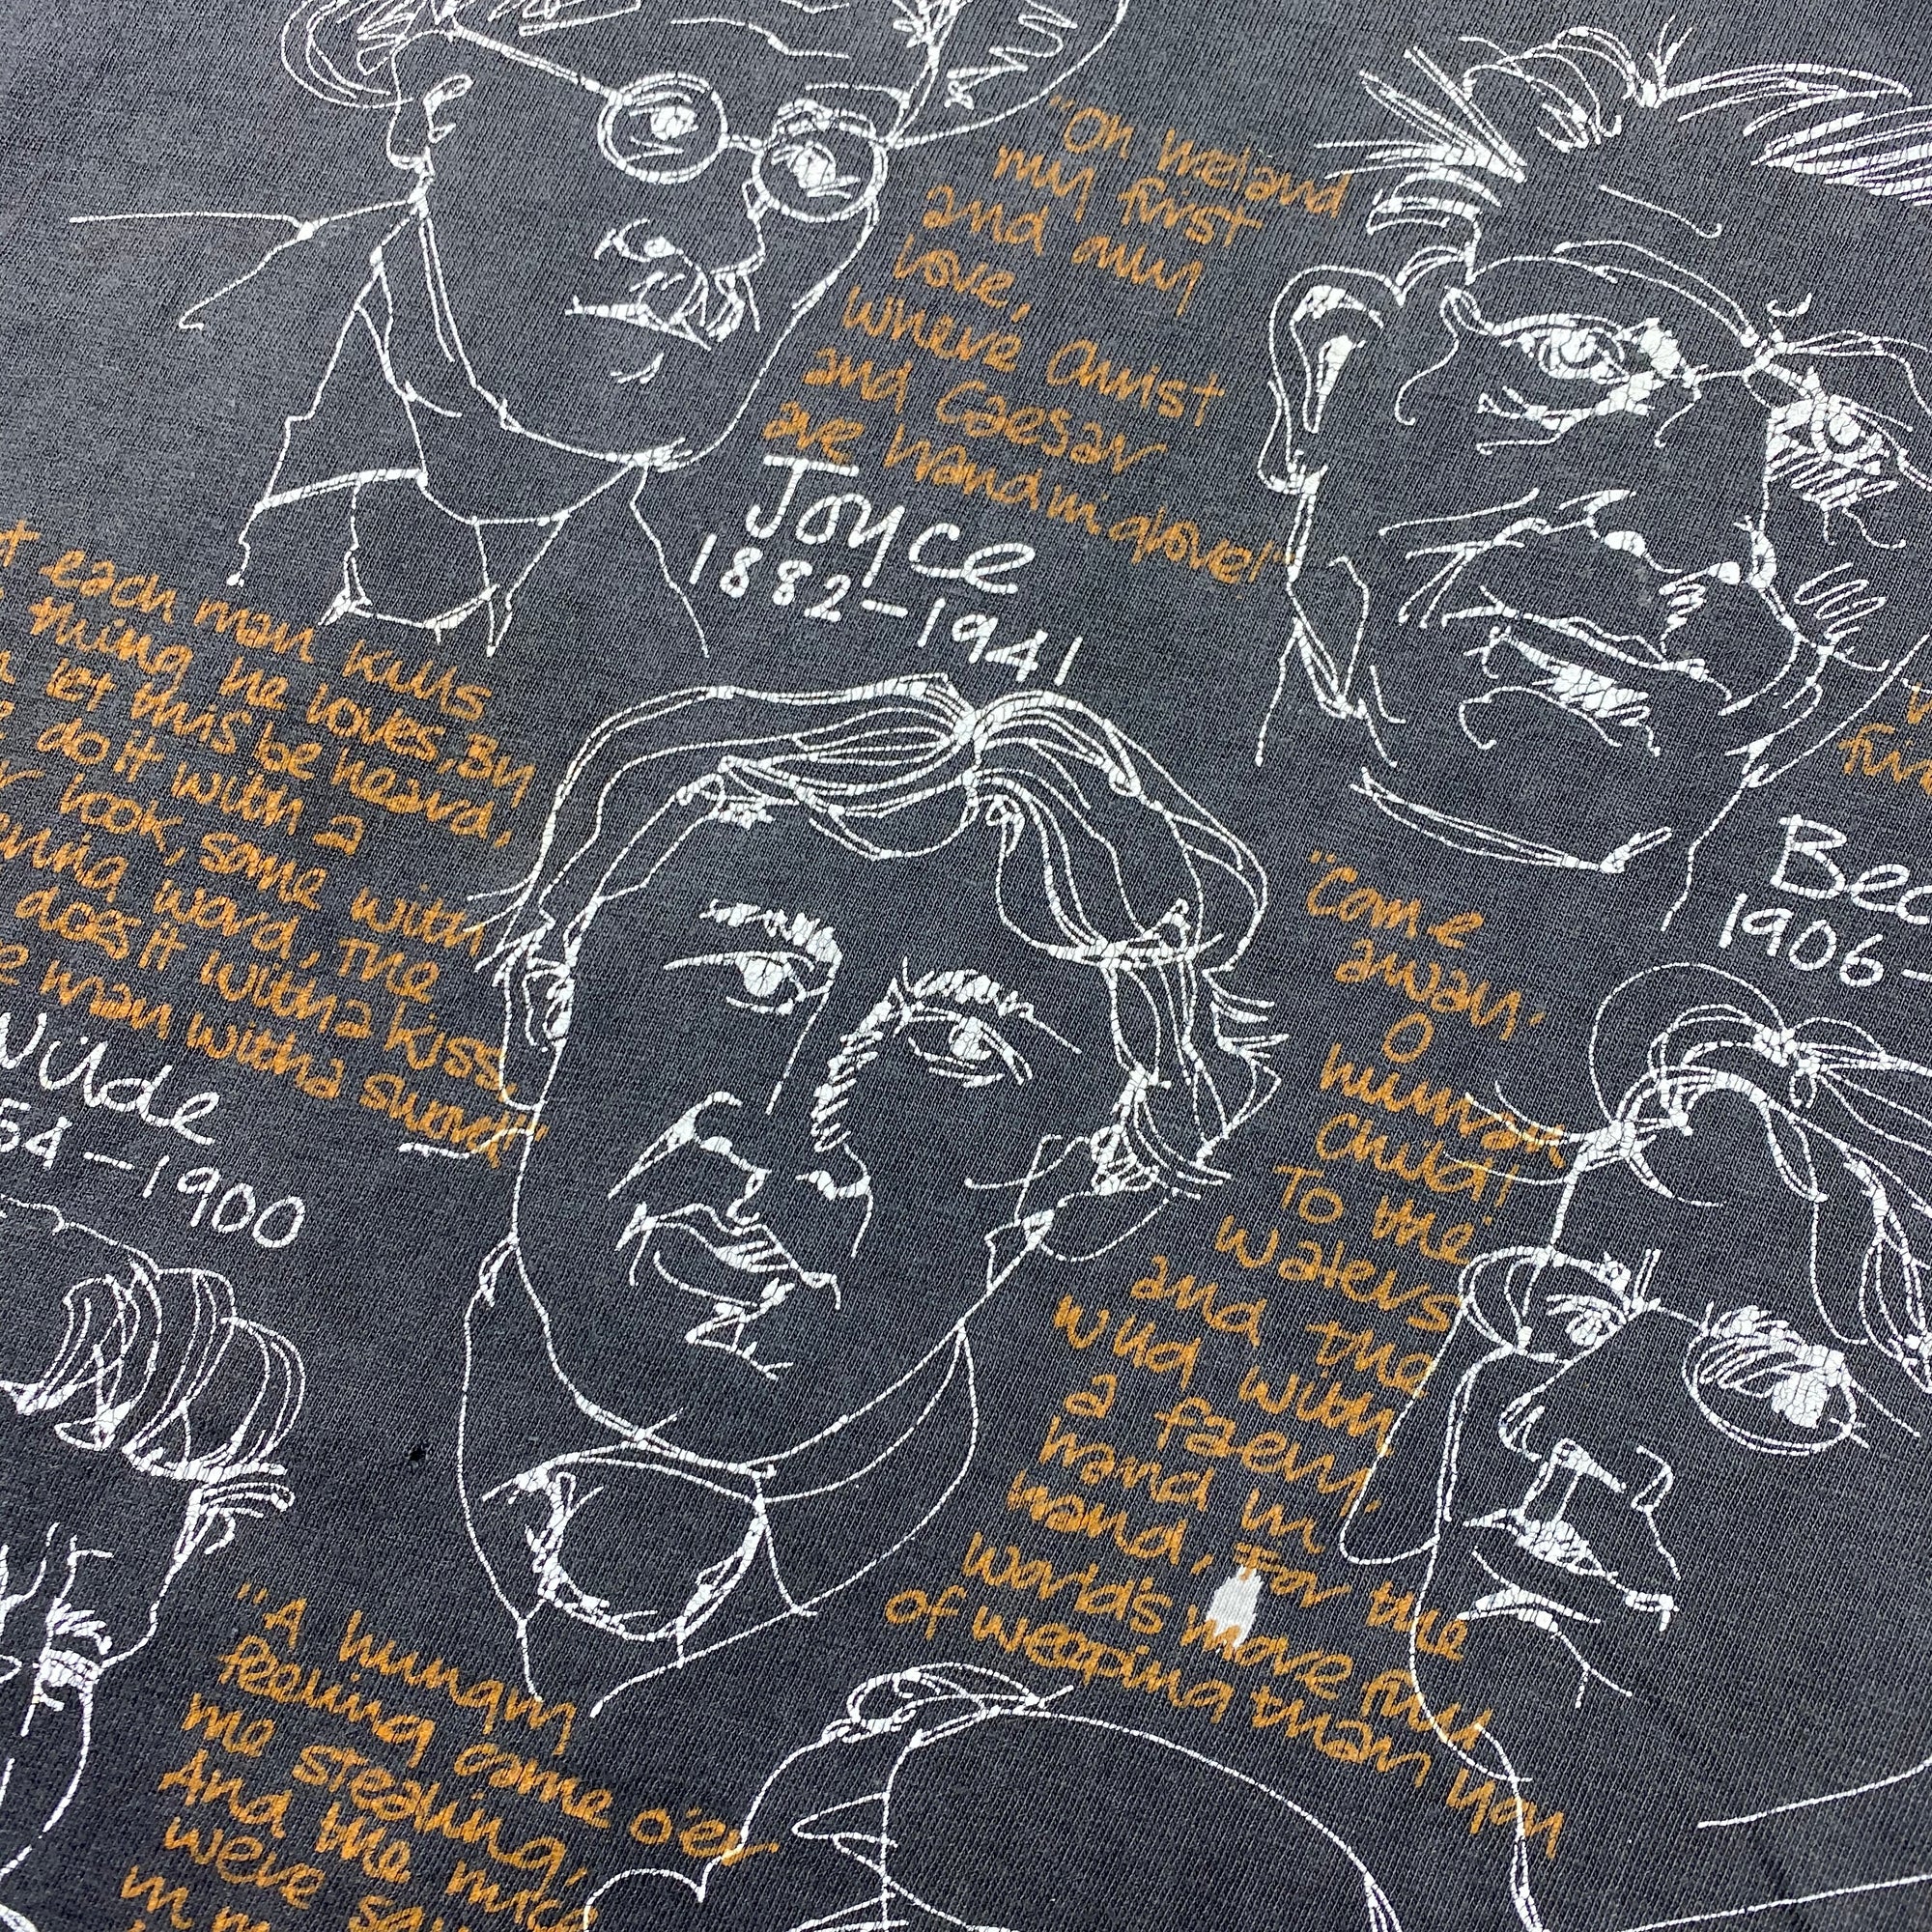 "Oh Ireland
my first
and only
love,
Where Christ
and Caesar
are hand in glove!"
Joyce
1882-1941
each man kills
thing he loves, By
let this be heard,
do it with a
look, some with
word, The
does it with a kiss,
man with a sword"
Wilde
54-1900
Bec
1906-
"Come
away,
O
human
Child!
To the
waters
and the
wild with
a faery,
hand in
hand, For the
world's more full
of weeping than you
"A hungry
feeling came o'er
me stealing,
And the mice
were
in m